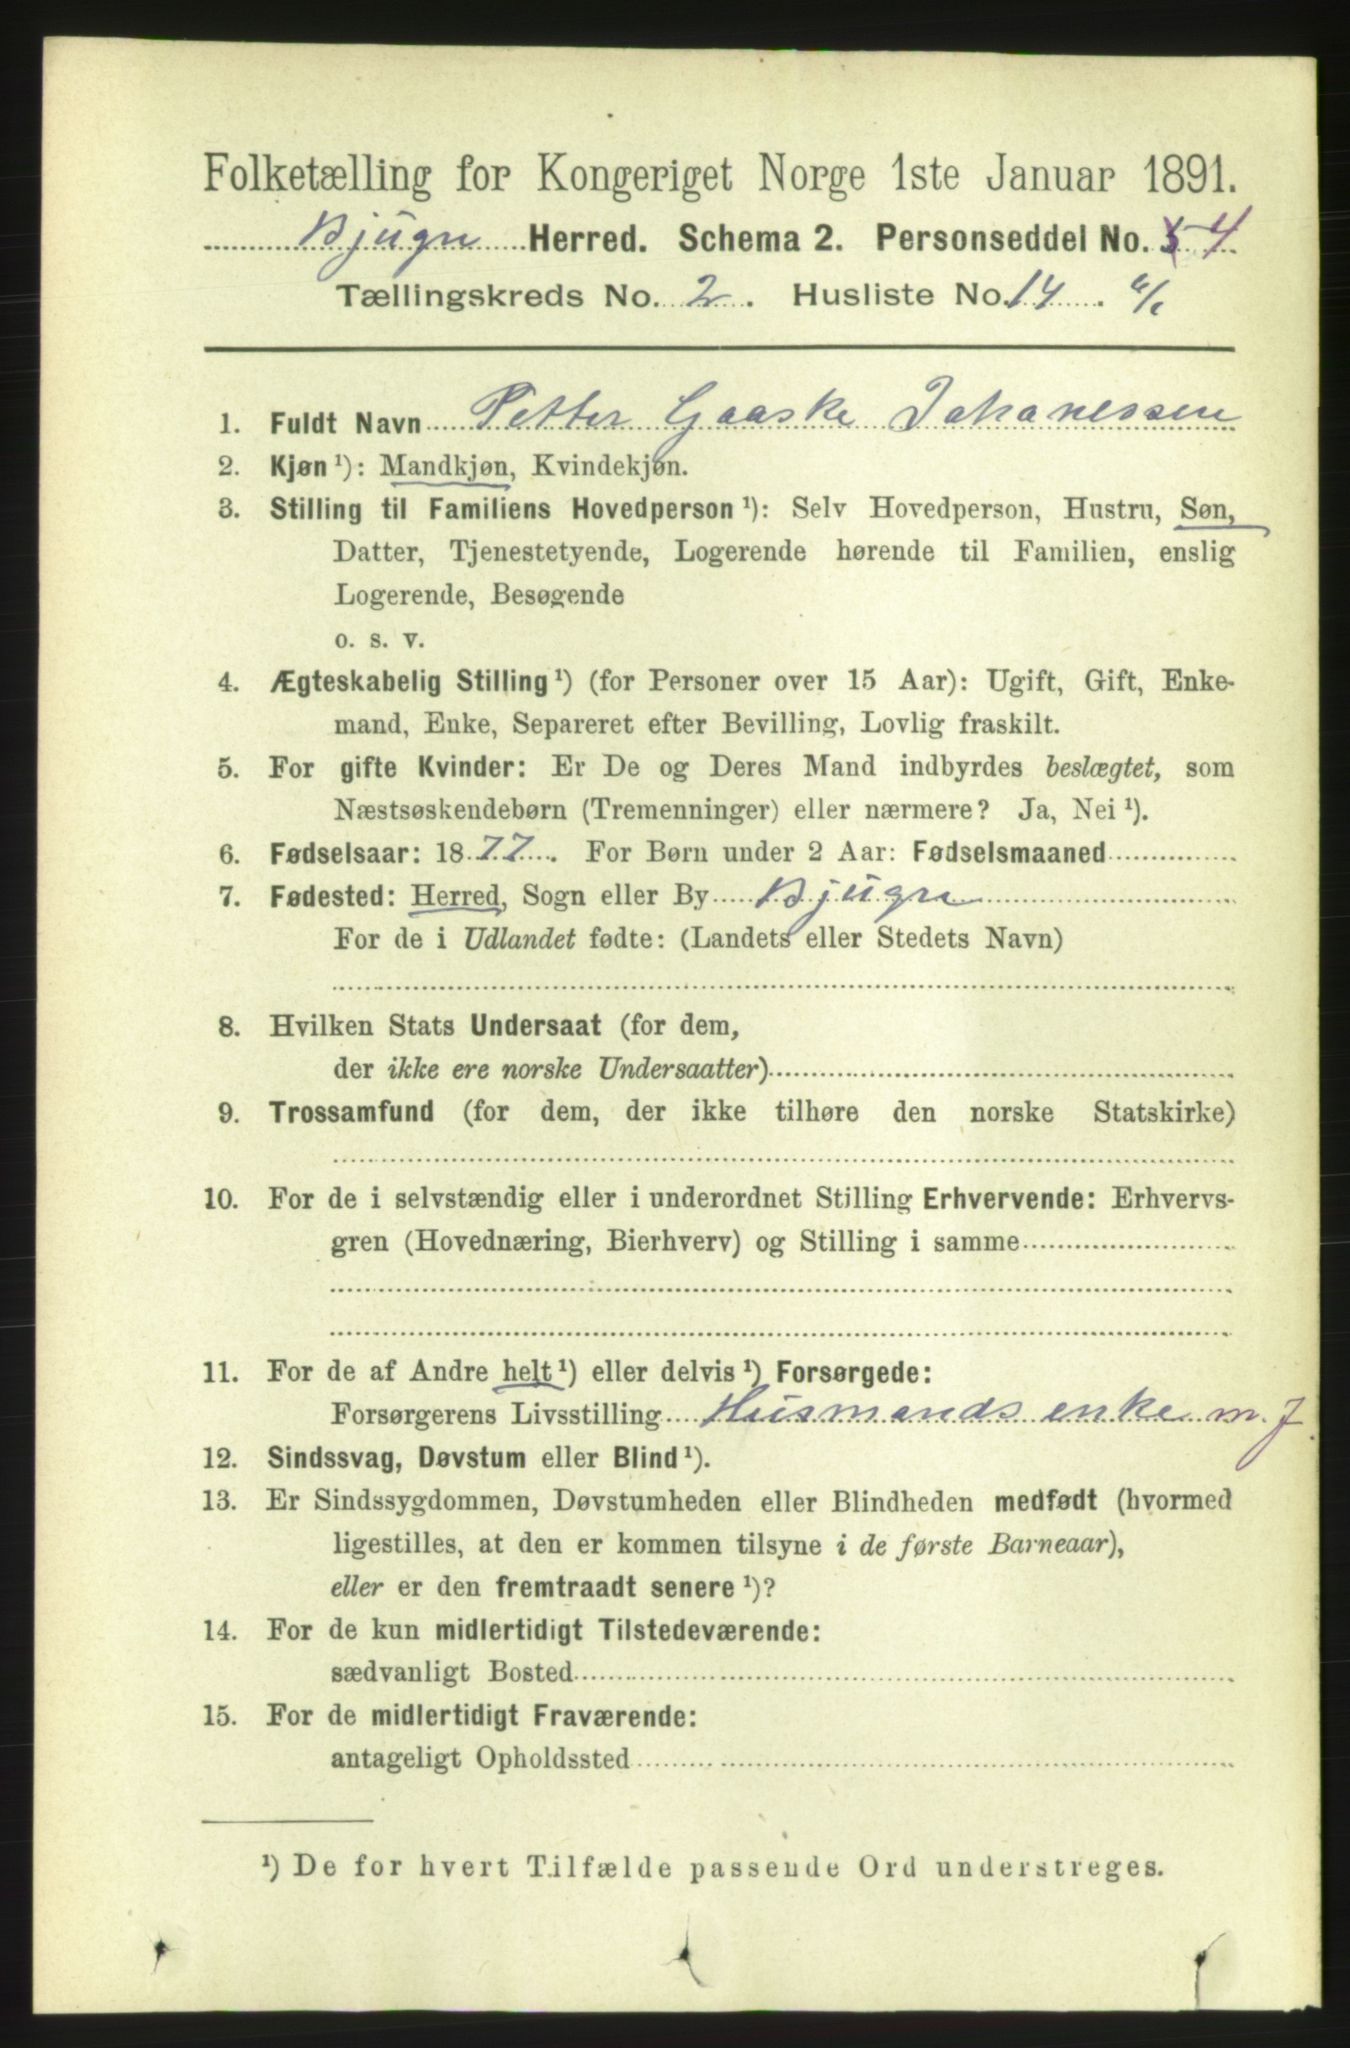 Folketælling for Kongeriget Norge 1ste Januar 1891.
Bjugn Herred. Schema 2. Personseddel No. 5 4
Tællingskreds No. 2. Husliste No. 14.
1. Fuldt Navn Petter Gaaske Johanessen
2. Kjøn ¹): Mandkjøn, Kvindekjøn.
3. Stilling til Familiens Hovedperson ¹): Selv Hovedperson, Hustru, Søn,
Datter, Tjenestetyende, Logerende hørende til Familien, enslig
Logerende, Besøgende
o. s. v.
4. Ægteskabelig Stilling ¹) (for Personer over 15 Aar): Ugift, Gift, Enke-
mand, Enke, Separeret efter Bevilling, Lovlig fraskilt.
5. For gifte Kvinder: Er De og Deres Mand indbyrdes beslægtet, som
Næstsøskendebørn (Tremenninger) eller nærmere? Ja, Nei ¹).
6. Fødselsaar: 1877. For Børn under 2 Aar: Fødselsmaaned
7. Fødested: Herred, Sogn eller By Bjugn
For de i Udlandet fødte: (Landets eller Stedets Navn)
8. Hvilken Stats Undersaat (for dem,
der ikke ere norske Undersaatter)
9. Trossamfund (for dem, der ikke tilhøre den norske Statskirke)
10. For de i selvstændig eller i underordnet Stilling Erhvervende: Erhvervs-
gren (Hovednæring, Bierhverv) og Stilling i samme
11. For de af Andre helt ¹) eller delvis ¹) Forsørgede:
Forsørgerens Livsstilling Husmands enke m. J.
12. Sindssvag, Døvstum eller Blind ¹).
13. Er Sindssygdommen, Døvstumheden eller Blindheden medfødt (hvormed
ligestilles, at den er kommen tilsyne i de første Barneaar),
eller er den fremtraadt senere ¹)?
14. For de kun midlertidigt Tilstedeværende:
sædvanligt Bosted
15. For de midlertidigt Fraværende:
antageligt Opholdssted
¹) De for hvert Tilfælde passende Ord understreges.